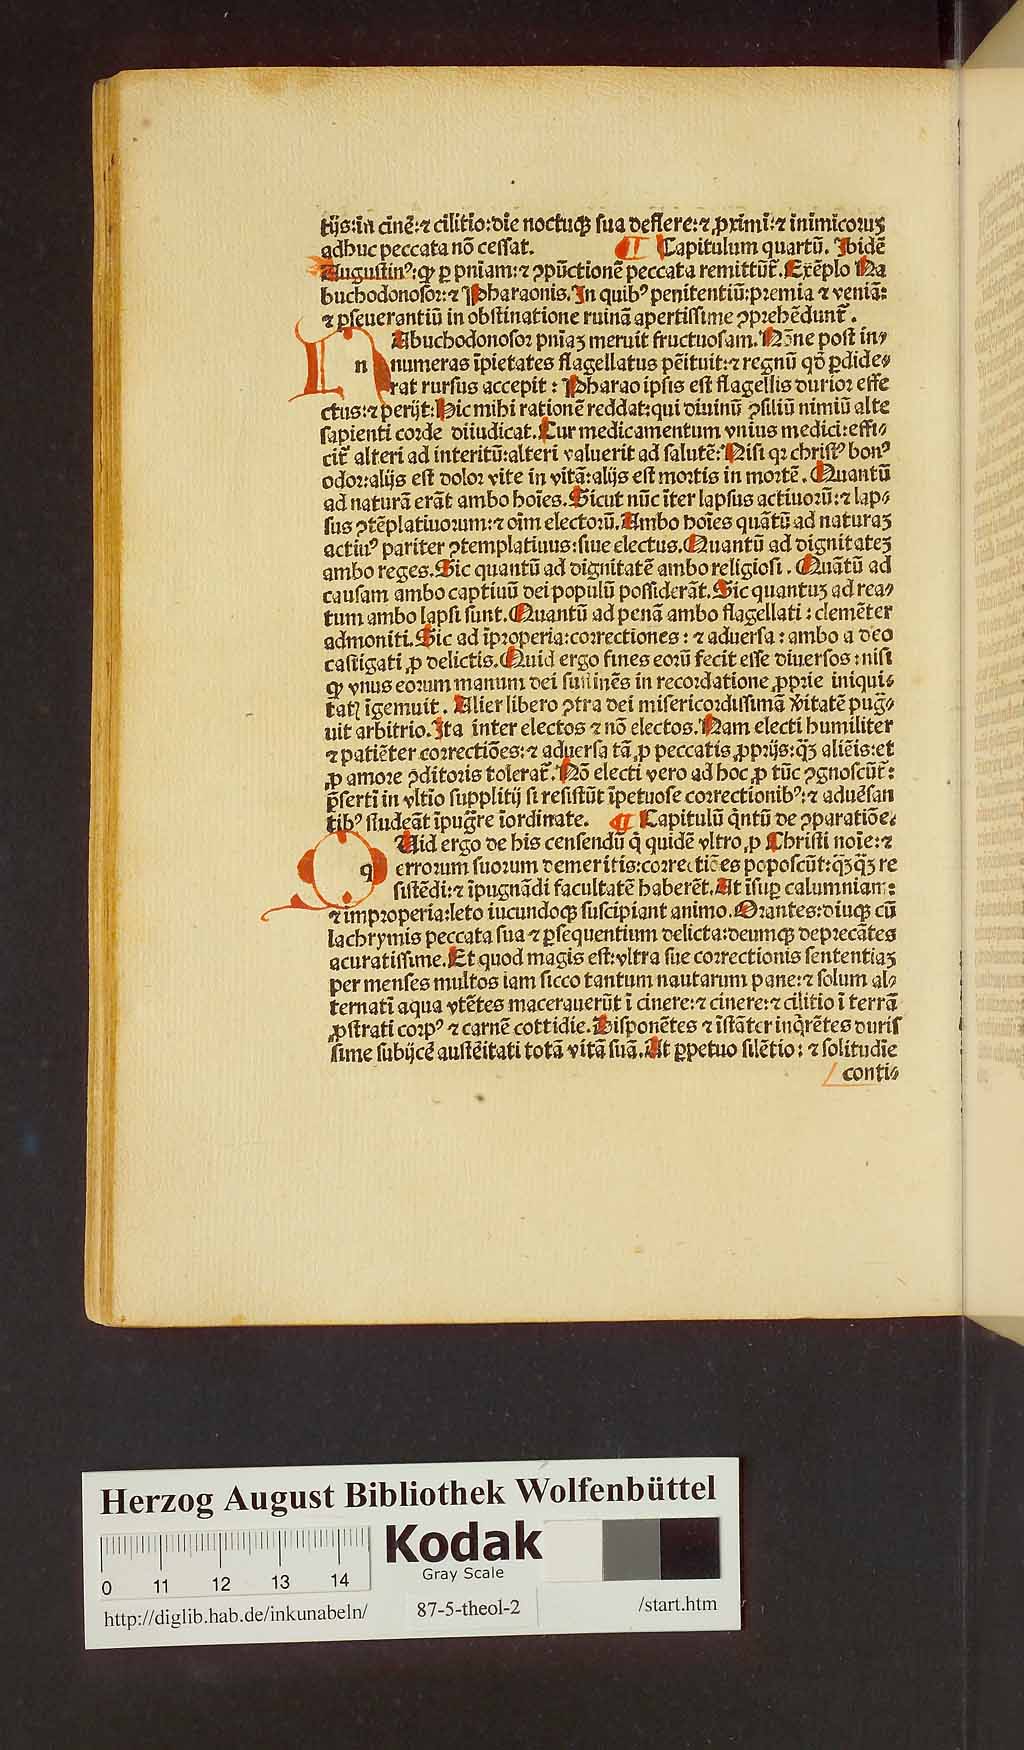 tijs:in cinē:⁊ cilitio:die noctuqꝫ sua deflere:⁊ ꝓximi:⁊ inimicoruꝫ
adhuc peccata nō cessat. ¶ Capitulum quartū. Ibidē
Augustinꝰ:ꝙ ꝑ pniam:⁊ ꝯpūctionē peccata remittūt᷑. Exēplo Na
buchodonosor:⁊ Pharaonis. In quibꝰ penitentiū:premia ⁊ veniā:
⁊ ꝑseuerantiū in obstinatione ruinā apertissime ꝯprehēdunt᷑.
n Abuchodonosor pniaꝫ meruit fructuosam. Nōne post in⸗
numeras īpietates flagellatus pēituit:⁊ regnū qđ ꝑdide⸗
rat rursus accepit: Pharao ipsis est flagellis durior effe
ctus:⁊ perijt: Hic mihi rationē reddat:qui diuinū ꝯsiliū nimiū alte
sapienti corde diiudicat. Cur medicamentum vnius medici:effi⸗
cit᷑ alteri ad interitū:alteri valuerit ad salutē: Nisi qꝛ christꝰ bonꝰ
odor:alijs est dolor vite in vitā:alijs est mortis in mortē. Quantū
ad naturā erāt ambo hoīes. Sicut nūc īter lapsus actiuorū:⁊ lap⸗
sus ꝯtēplatiuorum:⁊ oīm electorū. Ambo hoīes quātū ad naturaꝫ
actiuꝰ pariter ꝯtemplatiuus:siue electus. Quantū ad dignitateꝫ
ambo reges. Sic quantū ad dignitatē ambo religiosi. Quātū ad
causam ambo captiuū dei populū possiderāt. Sic quantuꝫ ad rea⸗
tum ambo lapsi sunt. Quantū ad penā ambo flagellati: clemēter
admoniti. Sic ad īproperia:correctiones: ⁊ aduersa: ambo a deo
castigati ꝓ delictis. Quid ergo fines eorū fecit esse diuersos: nisi
ꝙ vnus eorum manum dei sustinēs in recordatione ꝓprie iniqui⸗
tatꝭ īgemuit. Alier libero ꝯtra dei misericordissimā v̄itatē pug̃⸗
uit arbitrio. Ita inter electos ⁊ nō electos. Nam electi humiliter
⁊ patiēter correctiōes:⁊ aduersa tā ꝓ peccatis ꝓprijs:qꝫ̄ aliēis:et
ꝓ amore ꝯditoris tolerat᷑. Nō electi vero ad hoc ꝓ tūc ꝯgnoscūt᷑:
p̄serti in vltio supplitij si resistūt īpetuose correctionibꝰ:⁊ aduēsan
tibꝰ studeāt īpug̃re īordinate. ¶ Capitulū q̄ntū de ꝯparatiōe.
q Uid ergo de his censendū q̄ quidē vltro ꝓ Christi noīe:⁊
errorum suorum demeritis:correctiōes poposcūt:qꝫ̄qꝫ̄ re
sistēdi:⁊ īpugnādi facultatē haberēt. At īsuꝑ calumniam:
⁊ improperia:leto iucundoqꝫ suscipiant animo. Orantes:diuqꝫ cū
lachrymis peccata sua ⁊ ꝑsequentium delicta:deumqꝫ deprecātes
acuratissime. Et quod magis est:vltra sue correctionis sententiaꝫ
per menses multos iam sicco tantum nautarum pane:⁊ solum al⸗
ternati aqua vtētes macerauerūt ī cinere:⁊ cinere:⁊ cilitio ī terrā
ꝓstrati corpꝰ ⁊ carnē cottidie. Disponētes ⁊ īstāter inq̄rētes duris
sime subijcē austēitati totā vitā suā. At ꝑpetuo silētio: ⁊ solitudīe
conti⸗
Herzog August Bibliothek Wolfenbüttel
Kodak
Gray Scale
0 11 12 13 14
http://diglib.hab.de/inkunabeln/ 87-5-theol-2 /start.htm